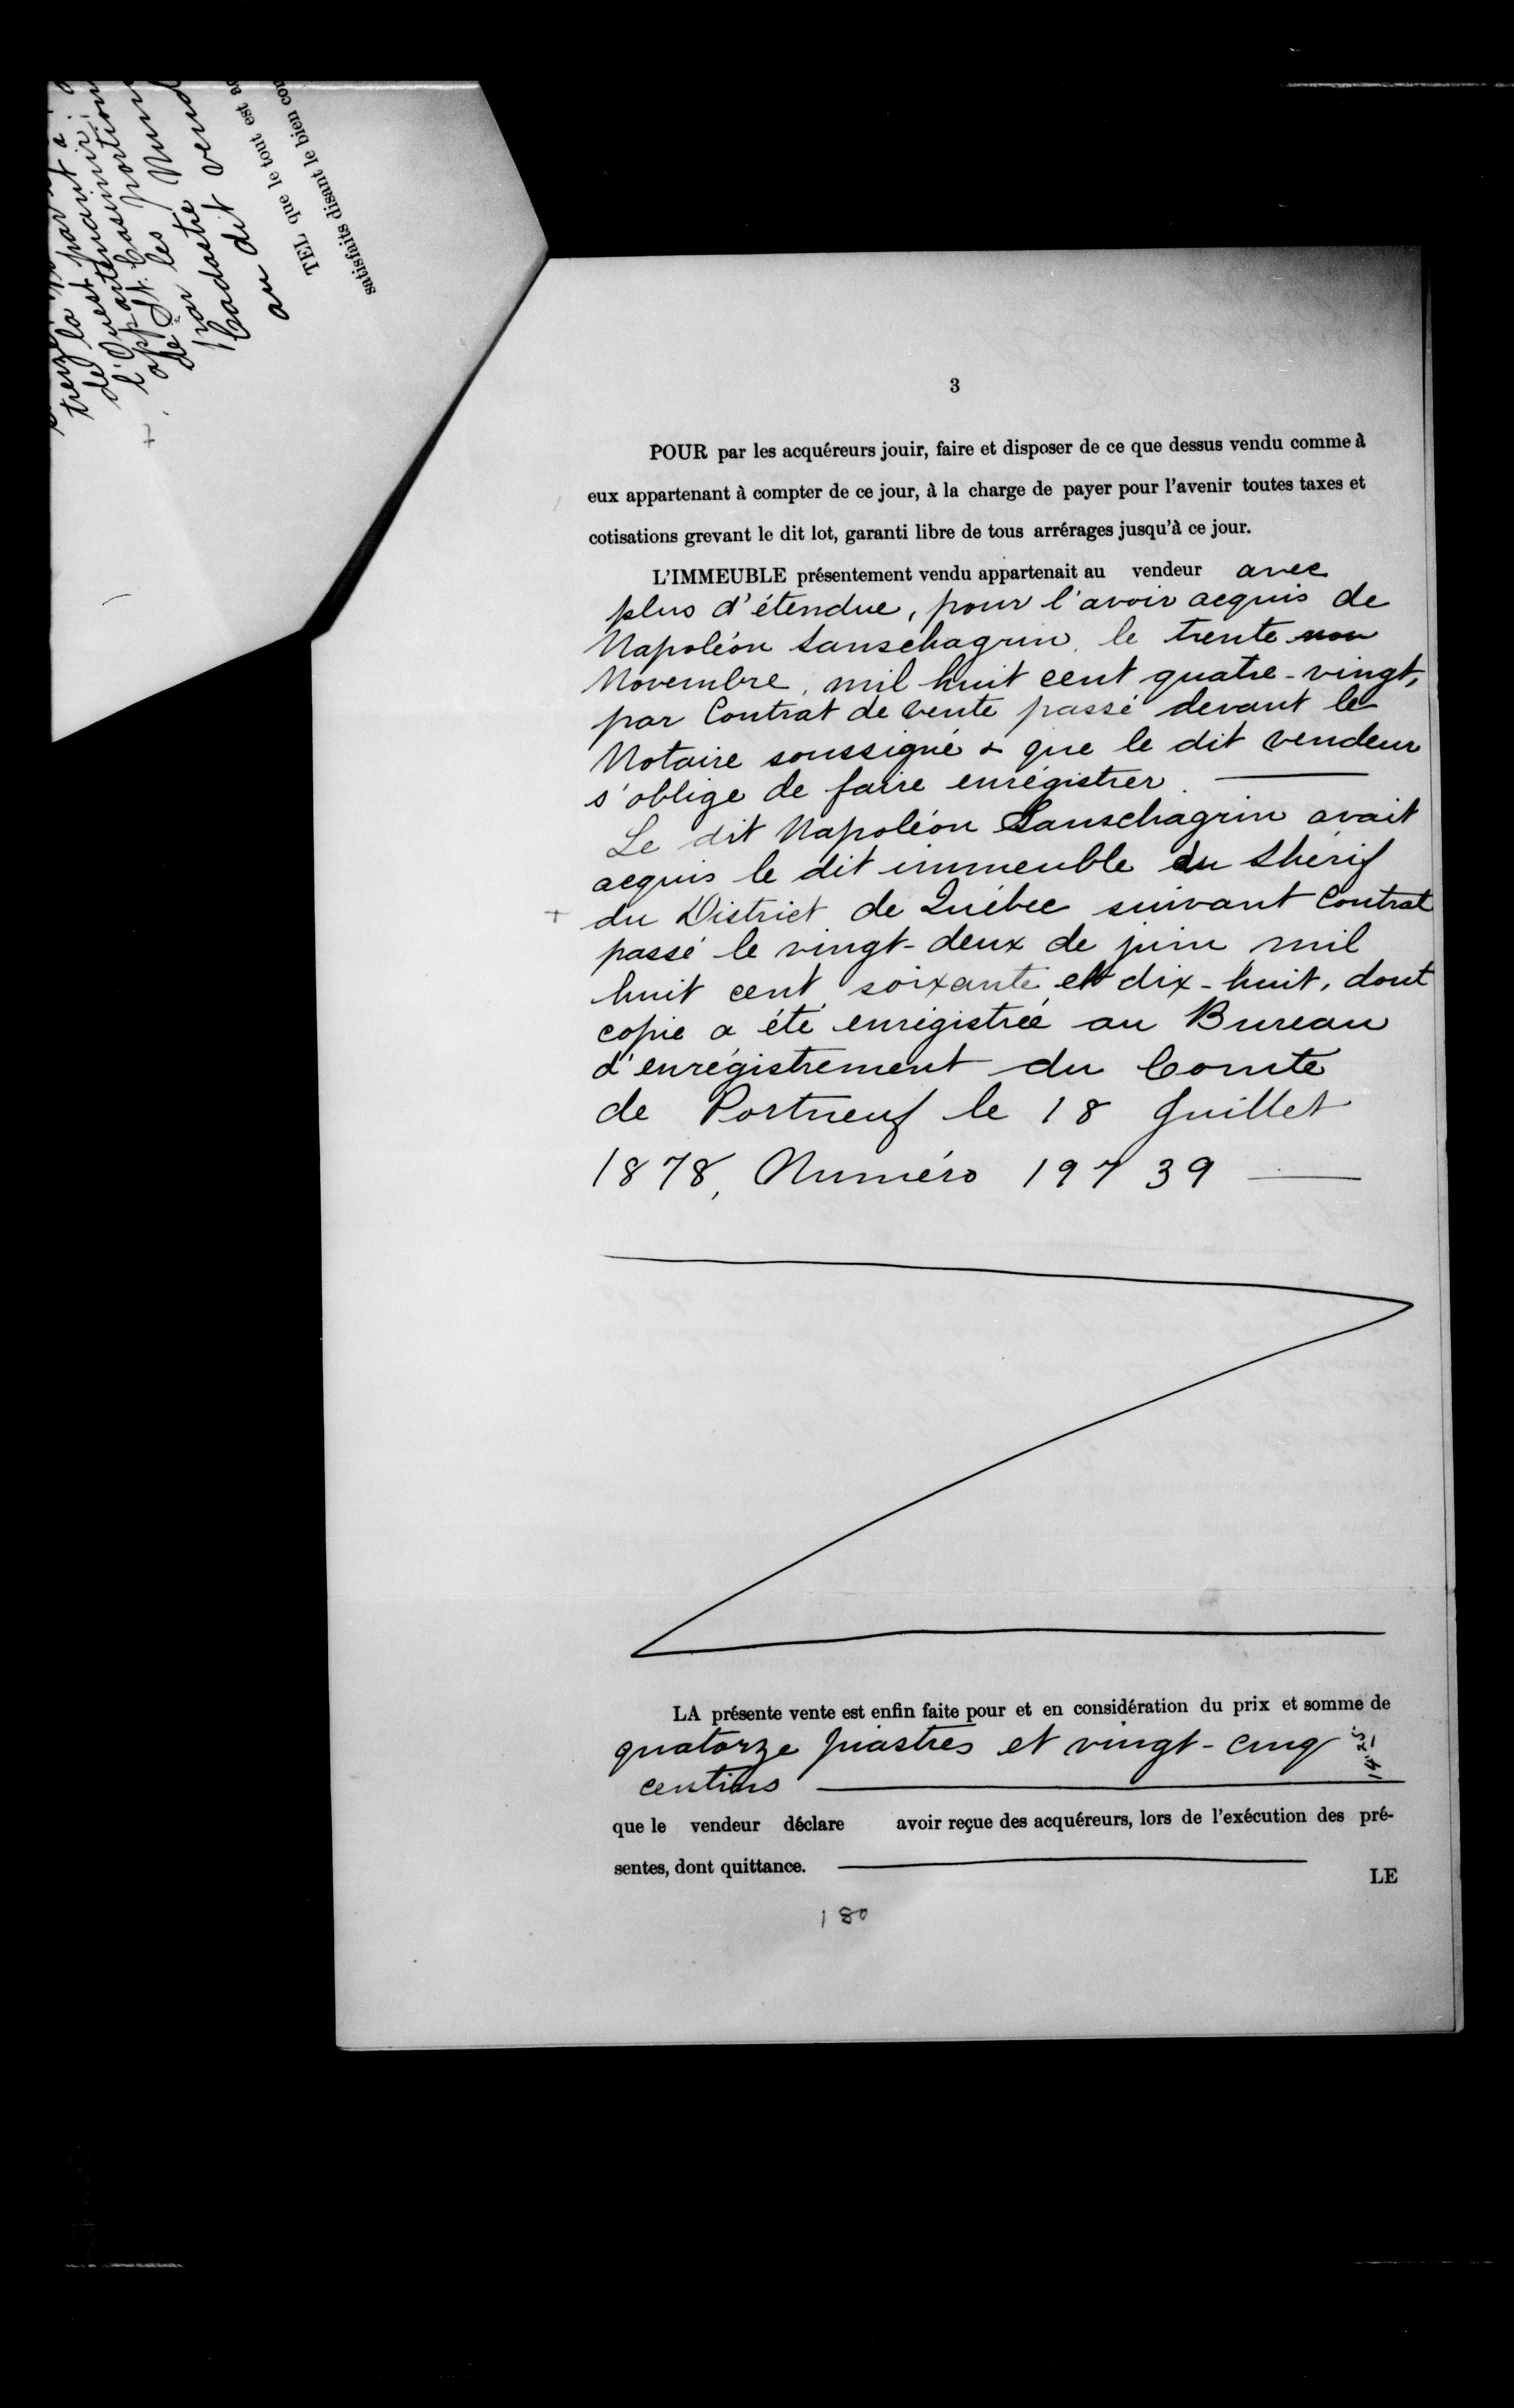 3
POUR par les acquéreurs jouir, faire et disposer de ce que dessus vendu comme à
eux appartenant à compter de ce jour, à la charge de payer pour l'avenir toutes taxes et
cotisations grevant le dit lot, garanti libre de tous arrérages jusqu'à ce jour.
L'IMMEUBLE présentement vendu appartenait au vendeur avec
plus d'étendue, pour l'avoir acquis de
Napoléon Sanschagrin, le trente nov
Novembre, mil huit cent quatre-vingt,
par Contrat de Vente passé devant le
Notaire soussigné & que le dit vendeur
s'oblige de faire enrégistrer.
Le dit Napoléon Sanschagrin avait
acquis le dit immeuble du Shérif
+ du District de Québec suivant Contrat
passé le vingt-deux de juin mil
huit cent soixante et dix-huit, dont
copie a été enrégistrée au Bureau
d'enrégistrement du Comté
de Portneuf le 18 Juillet
1878, Numéro 19739
LA présente vente est enfin faite pour et en considération du prix et somme de
quatorze piastres et vingt-cinq 14.25
centins
que le vendeur déclare avoir reçue des acquéreurs, lors de l'exécution des pré-
sentes, dont quittance.
LE
180
de les Num
Cadastre
au dit vend
TEL que le tout est
satisfaits disant le bien